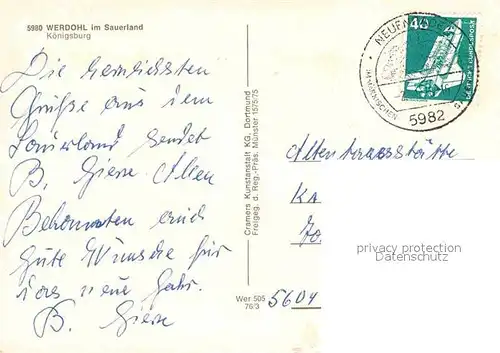 5980 WERDOHL im Sauerland
Königsburg
Die herzlichsten
Grüße aus dem
Sauerland sendet
B. Giese Allen
Bekannten auch
gute Wünsche für
das neue Jahr.
B. Giese
Cramers Kunstanstalt KG, Dortmund
Freigeg. d. Reg.-Präs. Münster 1575/75
Wer 505
76/3
40
5982
Altentagesstätte
KA
5604
privacy protection
Datenschutz